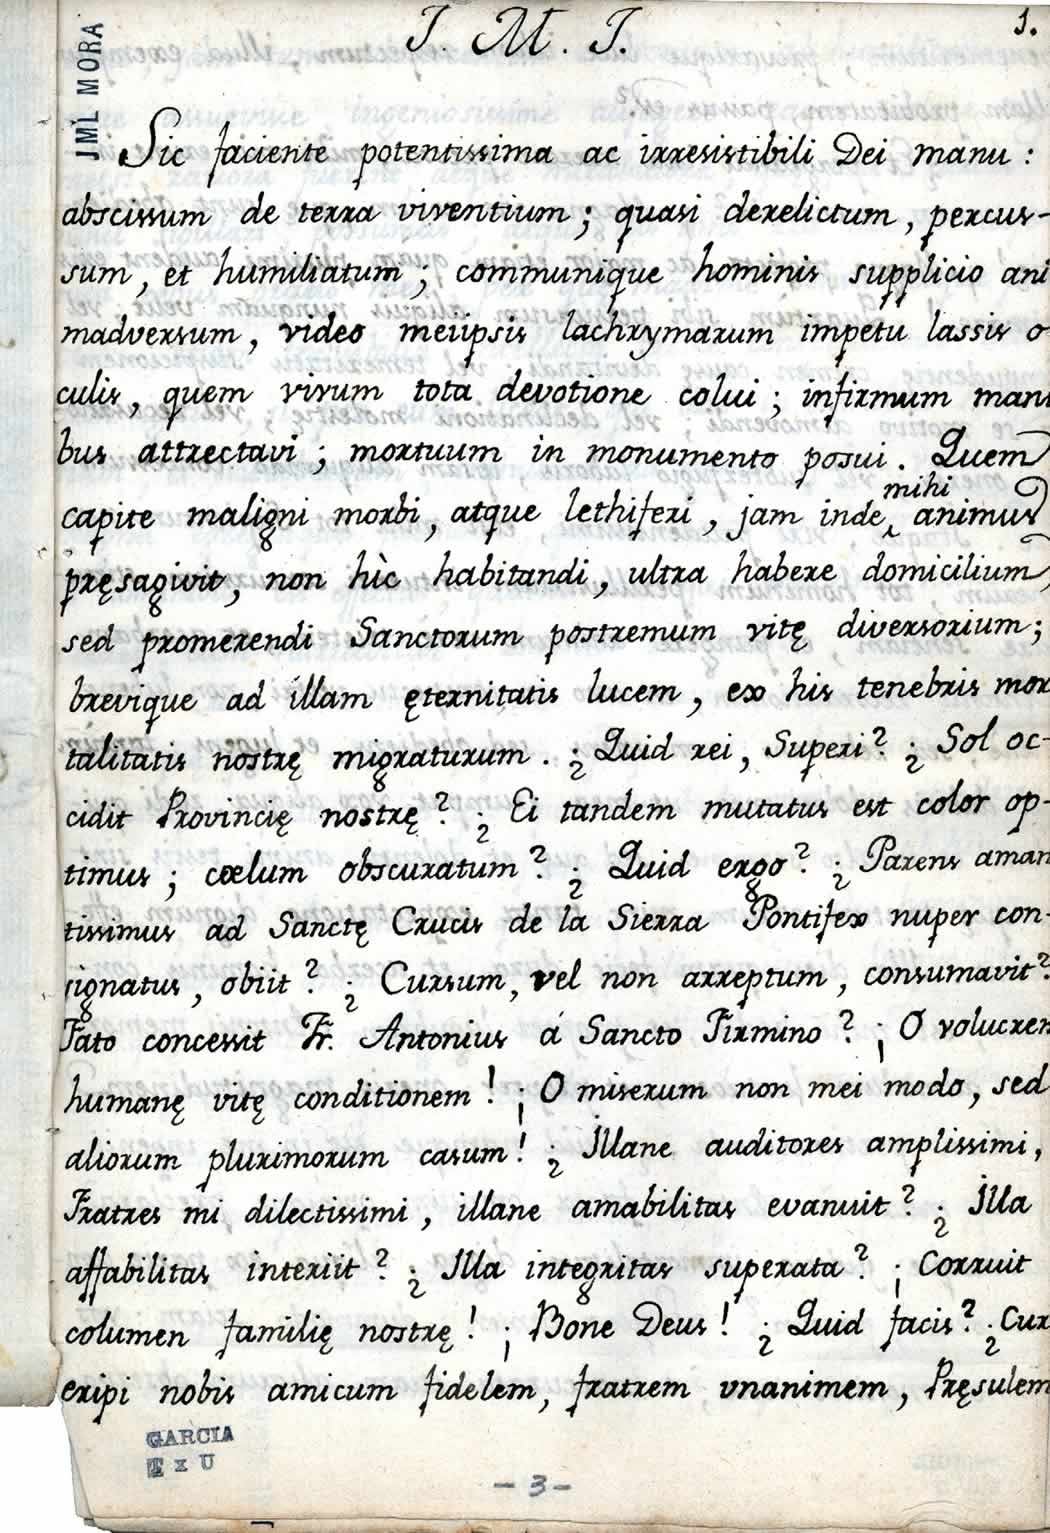 J. M. J.
1.
JML MORA
Sic faciente potentissima ac irresistibili Dei manu :
abscissum de terra viventium ; quasi derelictum , percus-
sum , et humiliatum ; communique hominis supplicio ani
madversum , video meiipsis lachrymarum impetu lassis o-
culis , quem vivum tota devotione colui ; infirmum mani
bus attrectavi ; mortuum in monumento posui . Quem
mihi
capite maligni morbi , atque lethiferi , jam inde ‸ animus
pręsagivit , non hìc habitandi , ultra habere domicilium ,
sed promerendi Sanctorum postremum vitę diversorium ;
brevique ad illam ęternitatis lucem , ex his tenebris mor
talitatis nostrę migraturum . ¿ Quid rei , Superi ? ¿ Sol oc-
cidit Provincię nostrę ? ¿ Ei tandem mutatus est color op-
timus ; cœlum obscuratum ? ¿ Quid ergo ? ¿ Parens aman
tissimus ad Sanctę Crucis de la Sierra Pontifex nuper con-
signatus , obiit ? ¿ Cursum , vel non arreptum , consumavit ?
Fato concessit Fr. Antonius á Sancto Firmino ? ¡ O volucrem
humanę vitę conditionem ! ¡ O miserum non mei modo , sed
aliorum plurimorum casum ! ¿ Illane auditores amplissimi ,
Fratres mi dilectissimi , illane amabilitas evanuit ? ¿ Illa
affabilitas interiit ? ¿ Illa integritas superata ? ¡ Corruit
columen familię nostrę ! ¡ Bone Deus ! ¿ Quid facis ? ¿ Cur
eripi nobis amicum fidelem , fratrem unanimem , Pręsulem
GARCIA
T x U
- 3 -